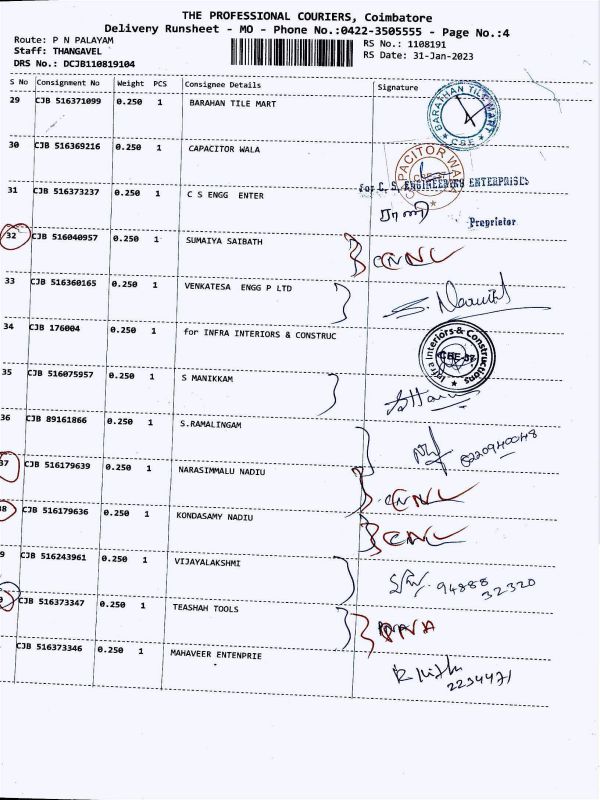 THE PROFESSIONAL COURIERS, Coimbatore
Delivery Runsheet - MO - Phone No.:0422-3505555 - Page No.:4
Route: P N PALAYAM
RS No.: 1108191
Staff: THANGAVEL
RS Date: 31-Jan-2023
DRS No.: DCJB110819104
S No Consignment No Weight PCS Consignee Details Signature
29 CJB 516371099 0.250 1 BARAHAN TILE MART
BARATHAN TILE MART
CBE
30 CJB 516369216 0.250 1 CAPACITOR WALA
CAPACITOR WALA
31 CJB 516373237 0.250 1 C S ENGG ENTER
for C. S. ENGINEERING ENTERPRISES
ராணி
Proprietor
32 CJB 516040957 0.250 1 SUMAIYA SAIBATH
CNNL
33 CJB 516360165 0.250 1 VENKATESA ENGG P LTD
34 CJB 176004 0.250 1 for INFRA INTERIORS & CONSTRUC
Infra Interiors & Constructions
CBE-37
35 CJB 516075957 0.250 1 S MANIKKAM
36 CJB 89161866 0.250 1 S.RAMALINGAM
8220940048
37 CJB 516179639 0.250 1 NARASIMMALU NADIU
CNNL
38 CJB 516179636 0.250 1 KONDASAMY NADIU
CNNL
9 CJB 516243961 0.250 1 VIJAYALAKSHMI
94888
32320
0 CJB 516373347 0.250 1 TEASHAH TOOLS
PNA
CJB 516373346 0.250 1 MAHAVEER ENTENPRIE
2234471